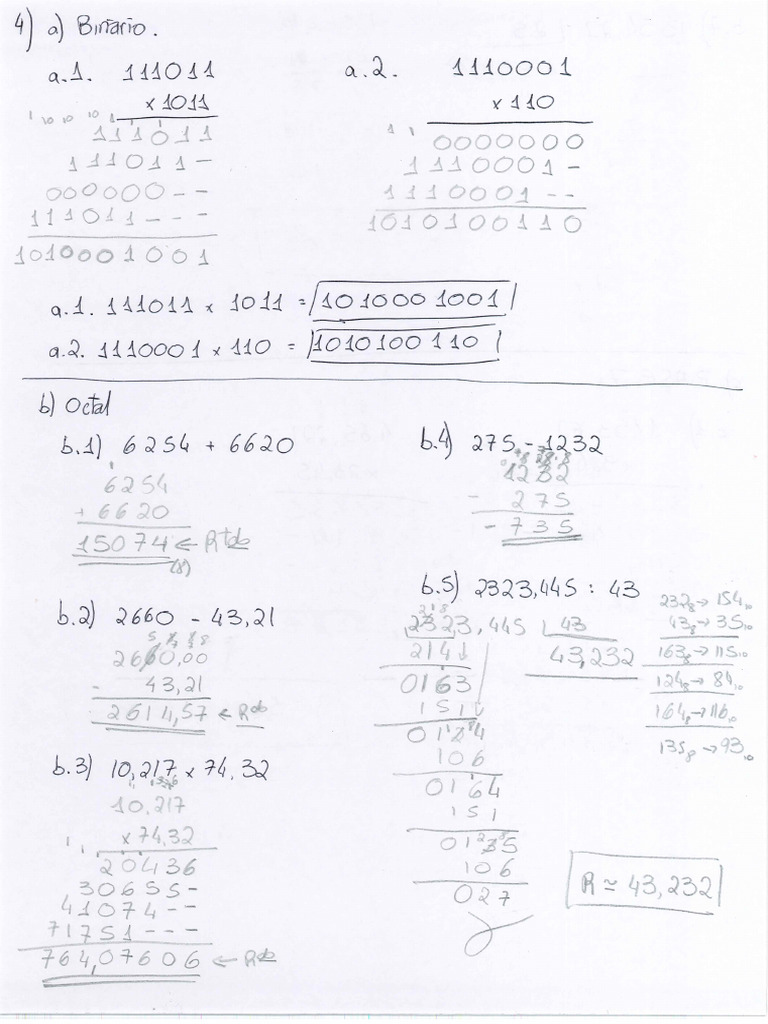 4) a) Binario.
a.1. 111011
× 1011
1 10 10 10 1
111011
111011 –
000000 – –
111011 – – –
1010001001
a.2. 1110001
× 110
1 1
0000000
1110001 –
1110001 – –
1010100110
a.1. 111011 × 1011 = 1010001001
a.2. 1110001 × 110 = 1010100110
b) Octal
b.1) 6254 + 6620
1
6254
+ 6620
15074 ← Rtdo
(8)
b.2) 2660 – 43,21
2660,00
– 43,21
2614,57 ← Rdo
b.3) 10,217 × 74,32
10,217
× 74,32
20436
30655 –
41074 – –
71751 – – –
764,07606 ← Rdo
b.4) 275 – 1232
1232
– 275
– 735
b.5) 2323,445 : 43
2323,445 | 43
214
43,232
0163
151
0124
106
0164
151
0135
106
027
232₈ → 154₁₀
43₈ → 35₁₀
163₈ → 115₁₀
124₈ → 84₁₀
164₈ → 116₁₀
135₈ → 93₁₀
R ≃ 43,232